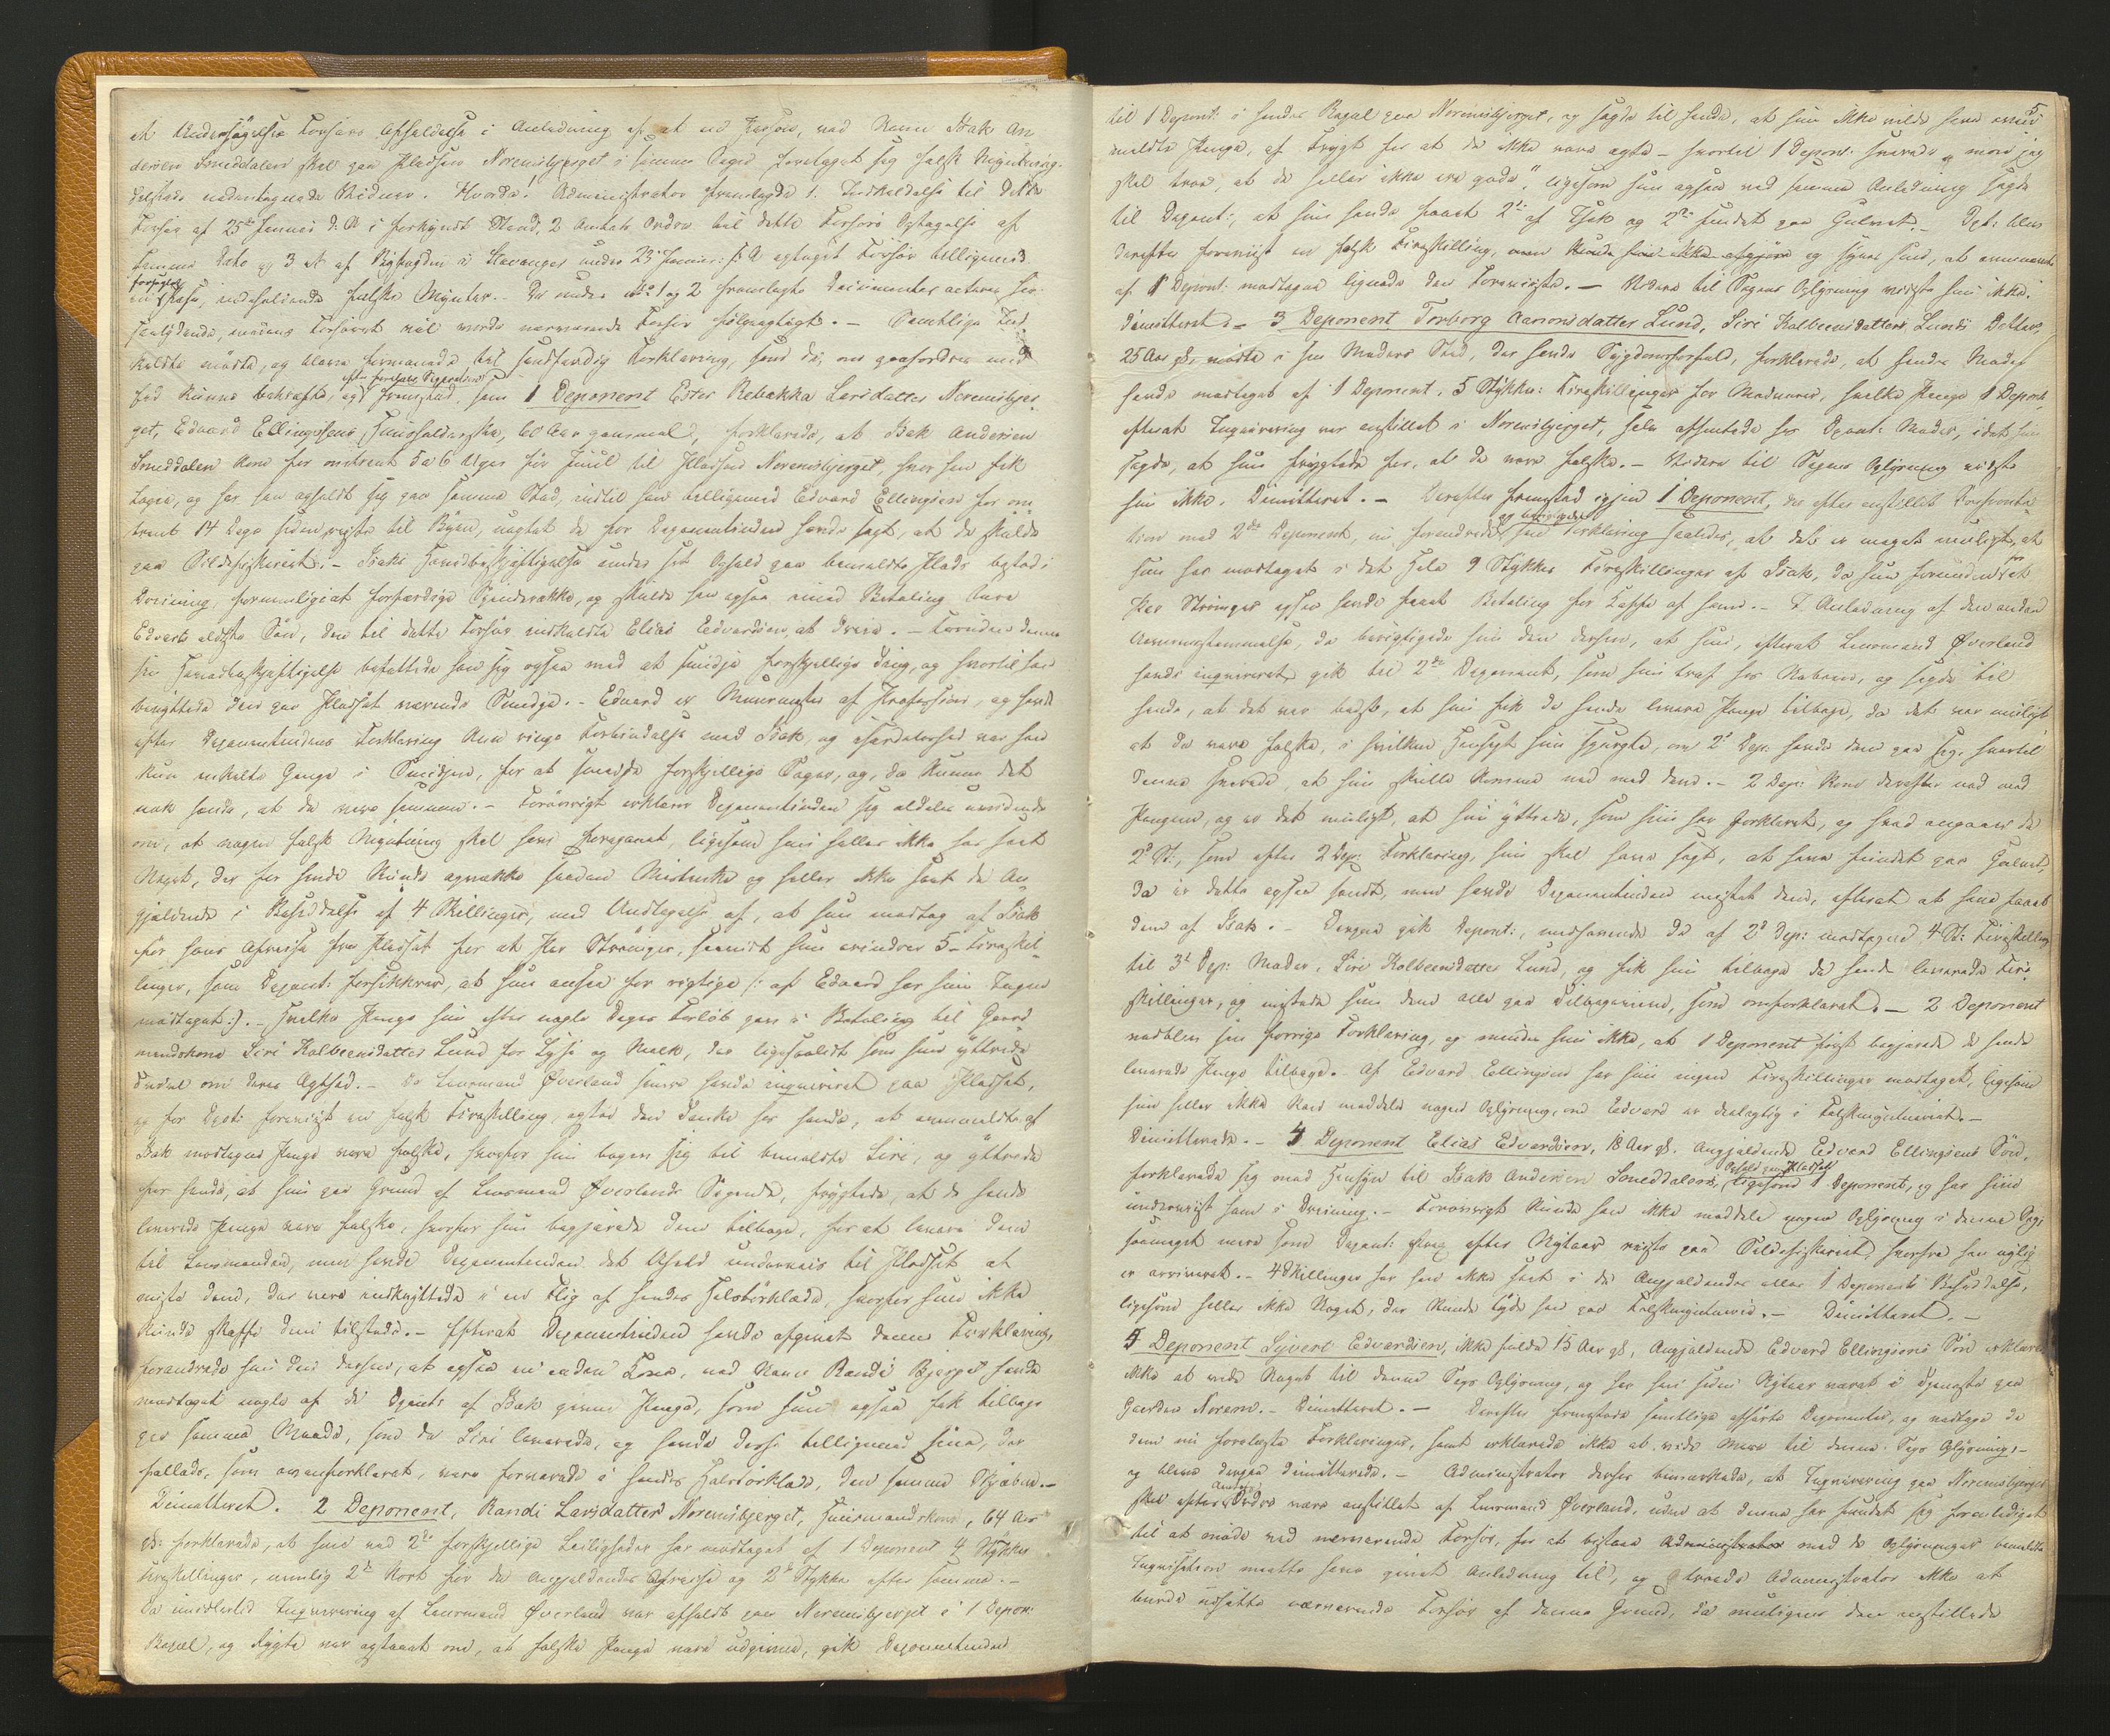 et Undersøgelses Forhørs Afholdelse i Anledning af at en Person, ved Navn Isak An
dersen Smeddalen skal paa Pladsen Noremsbjerget i samme Sogn forelagt sig falsk Myntning.
Tilstede undertegnede Vidner. Hvorda: Administrator fremlagde 1. Indkaldelse til dette
Forhør af 25de Januar d. A. i forkyndt Stand, 2 Amtets Ordre til dette Forhørs Optagelse af
samme Dato og 3 et af Byfogden i Stavanger under 23 Januar d: A optaget Forhør tilligemed
forseglet
en Æske, indeholdende falske Mynter. De under No 1 og 2 fremlagte Documenter acteres her-
saalydende, medens Forhøret vil vorde nærværende Forhør følgagtigt. – Samtlige Ind-
kaldte mødte, og bleve formanede til sandfærdig Forklaring, som de, om paafordres med
efter foregaaende
Eed kunne bekræfte, og fremstod som 1 Deponent Ester Rebekka Larsdatter Noremsbjer-
get, Edvard Ellingsens Huusholderske, 60 Aar gammel, forklarede, at Isak Andersen
Smeddalen kom for omtrent 5 a 6 Uger før Juul til Pladsen Noremsbjerget, hvor han fik
Logie, og har han opholdt sig paa samme Sted, indtil han tilligemed Edvard Ellingsen for om-
trent 14 Dage siden reiste til Byen, uagtet de for Deponentinden havde sagt, at de skulde
paa Sildefiskeriet. – Isaks Haandbeskjæftigelse under sit Ophold paa bemeldte Plads bestod i
Dreining, formentligen at forfærdige Spinderokke, og skulde han ogsaa imod Betaling lære
Edvards ældste Søn, den til dette Forhør indkaldte Elias Edvardsen, at dreie. – Foruden denne
sin Haandbeskjæftigelse befattede han sig ogsaa med at smidje forskjellige Ting, og hvortil han
benyttede den paa Pladset værende Smidje. – Edvard er Muurmester af Profession, og havde
efter Deponentindens Forklaring kun ringe Forbindelse med Isak, og
kun enkelte Gange i Smidjen, for at smidje forskjellige Sager, og, da kunne det
nok hende, at de vare sammen. – Forøvrigt erklærer Deponentinden sig aldeles uvidende
om, at nogen falsk Myntning skal have foregaaet, ligesom hun heller ikke har seet
Noget, der hos hende kunde opvække saadan Mistanke og heller ikke seet de An-
gjældende i Besiddelse af 4 Skillinger, med Undtagelse af, at hun modtog af Isak
før hans Afreise fra Pladset for et Par Strømper, saavidt hun erindrer 5 – Fireskil-
linger, som Deponti: forsikkrer, at hun ansaa for rigtige /: af Edvard har hun Ingen
modtaget :/. – Hvilke Penge hun efter nogle Dages Forløb gav i Betaling til Gaard-
mandskone Siri Kolbeensdatter Lund for Lysi og Melk, der ligesaalidt som hun yttrede
Tvivl om deres Ægthed. – Da Lensmand Øverland havde inqvireret paa Pladset,
og for Dpti: foreviist en falsk Fireskilling, opstod den Tanke hos hende, at ommeldte af
Isak modtagne Penge vare falske, hvorfor hun begav sig til bemeldte Siri, og yttrede
for hende, at hun paa Grund af Lensmand Øverlands Sigende, frygtede, at de hende
leverede Penge vare falske, hvorfor hun begjærede dem tilbage, for at levere dem
til Lensmanden, men havde Deponentinden det Uheld underveis til Pladset at
miste dem, der vare indknyttede i en Flig af hendes Halstørklæde, hvorfor hun ikke
kunde skaffe dem tilstede. – Efterat Deponentinden havde afgivet denne Forklaring,
forandrede hun den derhen, at ogsaa en anden Kone, ved Navn Randi Bjerget havde
modtaget nogle af de Dponti: af Isak givne Penge, som hun ogsaa fik tilbage
paa samme Maade, som de Siri leverede, og havde disse tilligemed hine, der
, som ovenforklaret, vare forvarede i hendes Halstørklæde, den samme Skjæbne. –
Dimitteret. 2 Deponent, Randi Larsdatter Noremsbjerget, Huusmandskone, 64 Aar
gl: forklarede, at hun ved 2de forskjellige Leiligheder har modtaget af 1 Deponent 4 Stykker
Fireskillinger, nemlig 2de kort før de Angjældendes Afreise og 2de Stykker efter samme. –
Da imidlertid Inqvirering af Lensmand Øverland var afholdt paa Noremsbjerget i 1 Depon:
Bopæl, og Rygte var opstaaet om, at falske Penge vare udgivne, gik Deponentinden
5
til 1 Depont: i hendes Bopæl paa Noremsbjerget, og sagde til hende, at hun ikke vilde have om-
meldte Penge, af Frygt for at de ikke vare ægte – hvortil 1 Depon: svarede „mon jeg
skal troe, at de heller ikke ere gode“, ligesom hun ogsaa ved samme Anledning sagde
til Deponti:, at hun havde faaet 2de af Isak og 2de fundet paa Gulvet. – Dpti: blev
derefter foreviist en falsk Fireskilling, men kunde hun ikke afgjøre og synes hun, at ommeldte
af 1 Depont: modtagne lignede den Foreviiste. – Videre til Sagens Oplysning vidste hun ikke.
Dimitteret. – 3 Deponent Torborg Aanonsdatter Lund, Siri Kolbeensdatter Lunds Datter,
25 Aar gl, mødte i sin Moders Sted, der havde Sygdomsforfald, forklarede, at hendes Moder
havde modtaget af 1 Deponent, 5 Stykker Fireskillinger for Madvarer, hvilke Penge 1 Depont,
efterat Inqvirering var anstillet i Noremsbjerget, selv afhentede hos Dponts: Moder, idet hun
sagde, at hun frygtede for, at de vare falske. – Videre til Sagens Oplysning vidste
hun ikke. Dimitteret. – Derefter fremstod igjen 1 Deponent, der efter anstillet Confronta-
og berigtigede
tion med 2den Deponent, nu forandrede sin Forklaring saaledes, at det er meget muligt, at
hun har modtaget i det Hele 9 Stykker Fireskillinger af Isak, da hun foruden for et
Par Strømper ogsaa havde faaet Betaling for Kaffe af ham. – I Anledning af den anden
Uoverensstemmelse, da berigtigede hun den derhen, at hun, efterat Lensmand Øverland
havde inqvireret, gik til 2den Deponent, som hun traf hos Naboen, og sagde til
hende, at det var bedst, at hun fik de hende leverede Penge tilbage, da det var muligt
at de vare falske, i hvilken Henseende hun spurgte, om 2d Dep: havde dem paa sig, hvortil
denne svarede, at hun skulde komme ned med dem. – 2 Dep: kom derefter ned med
Pengene, og er det muligt, at hun yttrede, som hun har forklaret, og hvad angaaer de
2de St:, som efter 2 Dep: Forklaring, hun skal have sagt, at have fundet paa Gulvet,
da er dette ogsaa sandt, men havde Deponentinden mistet dem, efterat at have faaet
dem af Isak. – Derpaa gik Depont:, medhavende de af 2d Dep: modtagne 4 St: Fireskilling
til 3d Dep: Moder, Siri Kolbeensdatter Lund, og fik hun tilbage de hende leverede Fire
skillinger, og mistede hun dem alle paa Tilbageveien, som omforklaret. – 2 Deponent
vedblev sin forrige Forklaring, og mindes hun ikke, at 1 Deponent først begjærede de hende
leverede Penge tilbage. Af Edvard Ellingsen har hun ingen Fireskillinger modtaget, ligesom
hun heller ikke kan meddele nogen Oplysning, om Edvard er deelagtig i Falskmynteriet. –
Dimitterede. – 4 Deponent Elias Edvardsen, 18 Aar gl. Angjældende Edvard Ellingsens Søn,
Ophold paa Pladset
forklarede sig med Hensyn til Isak Andersen Smeddalens, ligesom 1 Deponent, og har han
underviist ham i Dreining. – Forøvrigt kunde han ikke meddele nogen Oplysning i denne Sag,
saameget mere som Deponti: strax efter Nytaar reiste paa Sildefiskeriet, hvorfra han nylig
er arriveret. – 4 Skillinger har han ikke seet i de Angjældendes eller 1 Deponents Besiddelse,
ligesom heller ikke Noget, der kunde tyde hen paa Falskmynterie. – Dimitteret. –
5 Deponent Sjvert Edvardsen, ikke fulde 15 Aar gl, Angjældende Edvard Ellingsens Søn erklærede
ikke at vide Noget til denne Sags Oplysning, og har han siden Nytaar været i Tjeneste paa
Gaarden Norem. – Dimitteret. – Derefter fremstode samtlige afhørte Deponenter, og vedtoge de
dem nu forelæste Forklaringer, samt erklærede ikke at vide mere til denne Sags Oplysning, –
og bleve derpaa dimitterede. – Administrator derhos bemærkede, at Inqvirering paa Noremsbjerget
Amtets
skal efter Ordre være anstillet af Lensmand Øverland, uden at denne har fundet sig foranlediget
til at møde ved nærværende Forhør, for at bistaae Administrator med de Oplysninger bemeldte
Inqvisition maatte have givet Anledning til, og troede Administrator ikke at
burde udsætte nærværende Forhør af denne Grund, da muligens den anstillede